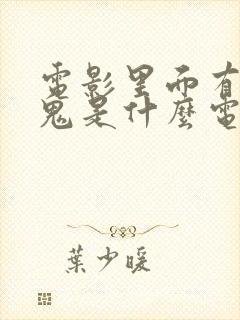 電影里面有
鬼是什麼電
葉少暖